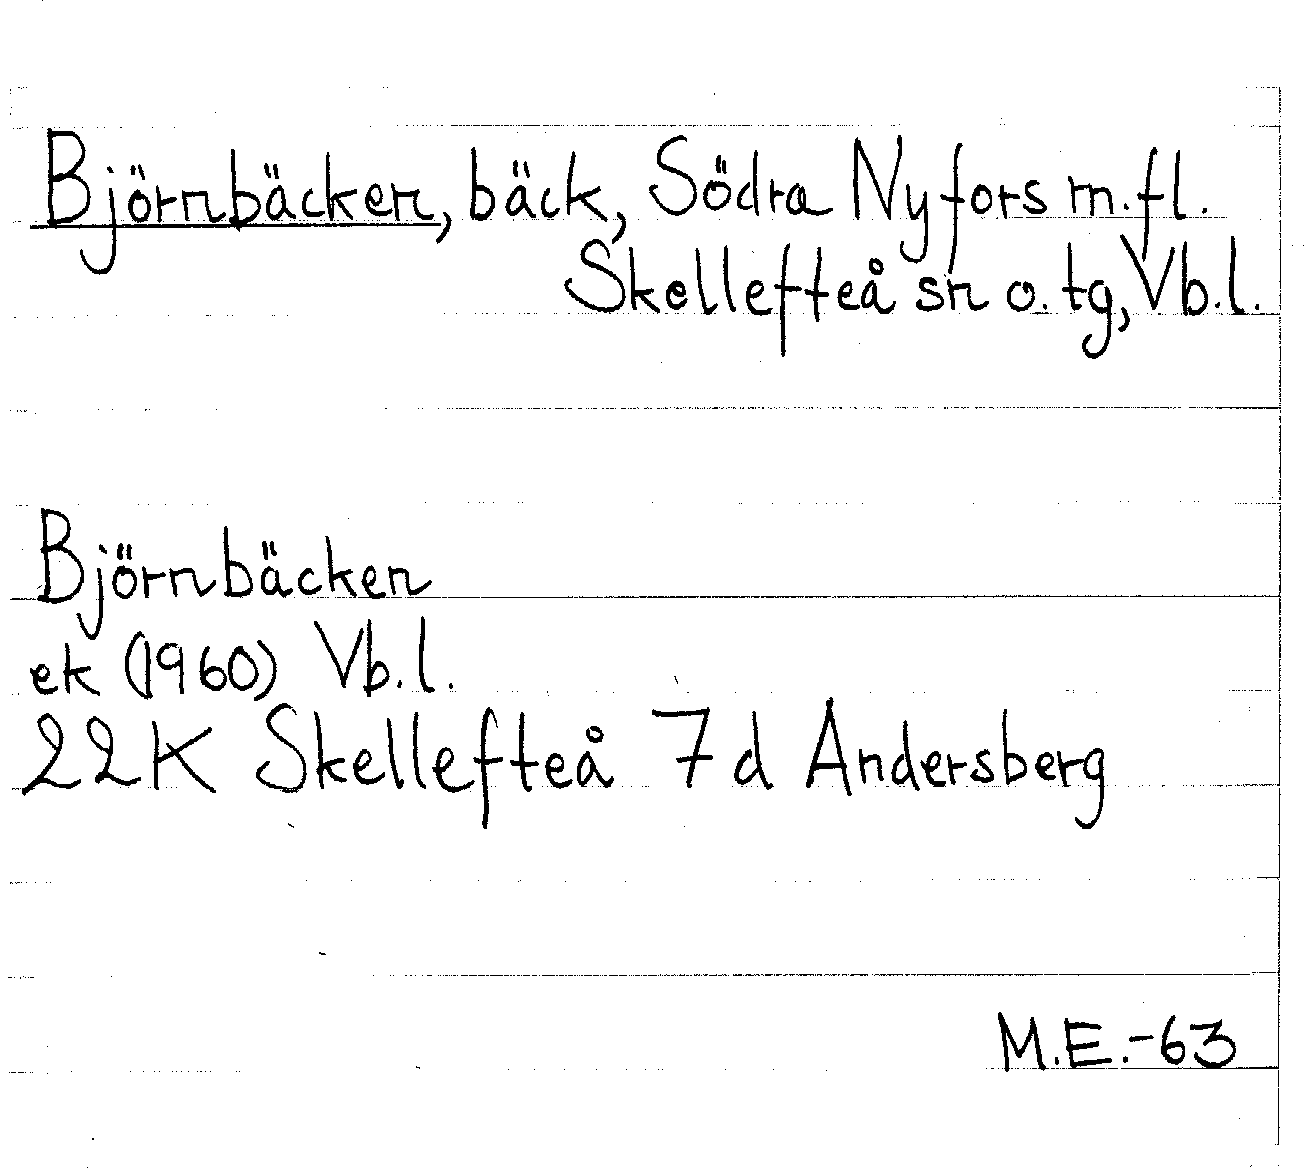 Björnbäcken, bäck, Södra Nyfors m.fl.
Skellefteå sn o. tg, Vb.l.
Björnbäcken
ek (1960) Vb.l.
22K Skellefteå 7d Andersberg
M.E.-63